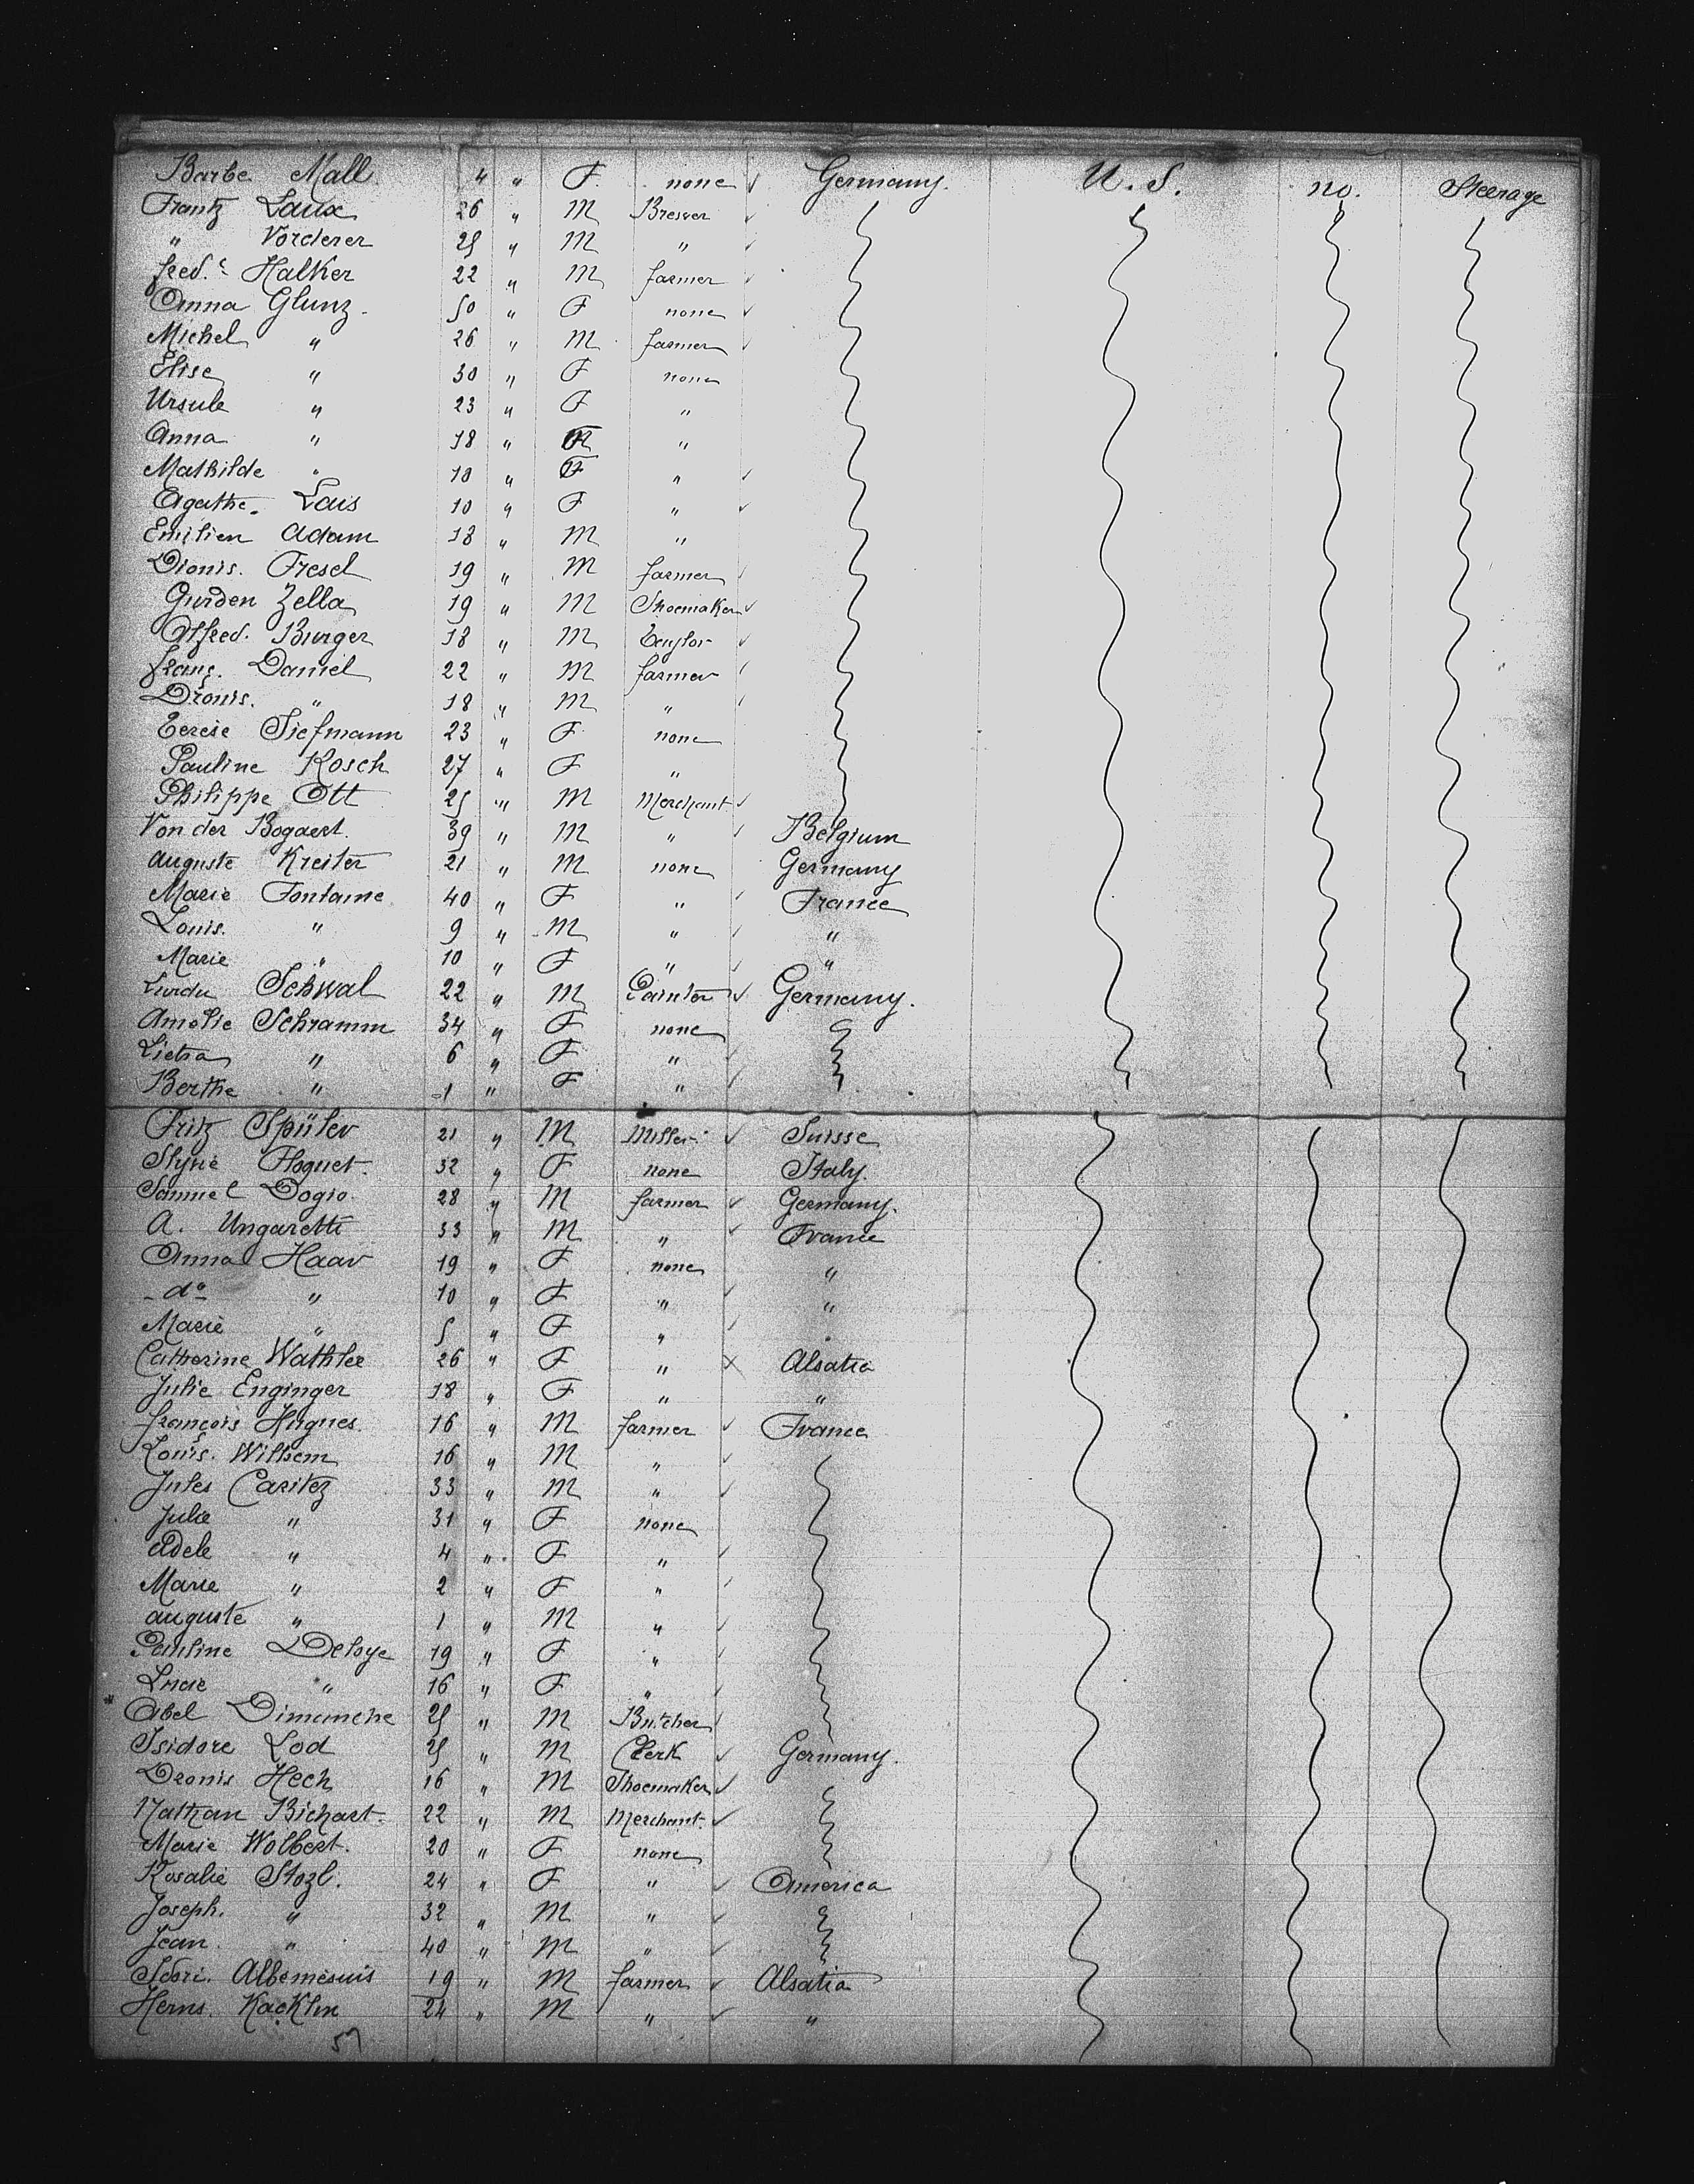 Barbe Mall 4 " F. none ✓ Germany. U. S. no. Steerage
Frantz Laux 26 " M Brewer ✓
" Vorderer 25 " M " ✓
fred.c Halker 22 " M farmer ✓
Anna Glunz. 50 " F none ✓
Michel " 26 " M farmer ✓
Elise " 30 " F none
Ursule " 23 " F "
Anna " 18 " F "
Mathilde " 10 " F " ✓
Agathe. Lais 10 " F " ✓
Emilien Adam 18 " M "
Dionis. Fresel 19 " M farmer ✓
Gurden Zella 19 " M Shoemaker ✓
Alfred. Burger 18 " M ✓
franç. Daniel 22 " M farmer ✓
Dionis. " 18 " M " ✓
Siefmann 23 " F none
Pauline Kosch 27 " F "
Philippe Ott 25 " M Merchant ✓
Von der Bogaert. 39 " M " ✓ Belgium
auguste Kreiter 21 " M none Germany
Marie Fontaine 40 " F " ✓ France
Louis. " 9 " M " ✓ "
Marie " 10 " F " ✓ "
Schwal 22 " M Painter ✓ Germany.
Amelie Schramm 34 " F none
" 6 " F " ✓
Berthe " 1 " F " ✓
Fritz Spüler 21 " M Miller ✓ Suisse
Hoguet. 32 " F none Italy.
Samuel Dogio. 28 " M farmer ✓ Germany.
A. Ungaretti 33 " M " ✓ France
Anna Haar 19 " F none "
- do - " 10 " F " ✓ "
Marie " 5 " F " ✓ "
Catherine Wathler 26 " F " X Alsatia
Julie Enginger 18 " F " "
françois Hugues. 16 " M farmer ✓ France
Louis. Wilhem 16 " M " ✓
Jules Caritez 33 " M " ✓
Julie " 31 " F none
Adele " 4 " F " ✓
Marie " 2 " F " ✓
auguste " 1 " M " ✓
Pauline Deloye 19 " F " ✓
Lucie " 16 " F " ✓
" Abel Dimanche 25 " M Butcher ✓
Isidore Lod 25 " M Clerk ✓ Germany.
Dionis Hech 16 " M Shoemaker ✓
Nathan Bichart. 22 " M Merchant. ✓
Marie Wolbert. 20 " F none
Rosalie Stozl. 24 " F " ✓ America
Joseph. " 32 " M " ✓
Jean. " 40 " M " ✓
Albemesuis 19 " M farmer ✓ Alsatia
Herns. Kacklin 24 " M " ✓ "
57